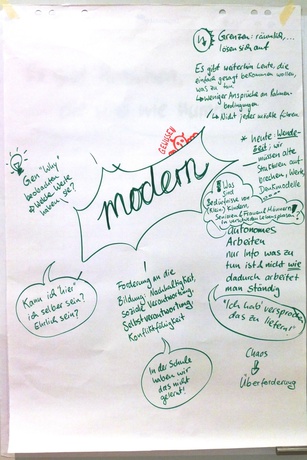 Grenzen: räumlich,...
lösen sich auf
Es gibt weiterhin Leute, die
einfach gesagt bekommen wollen,
was zu tun
↳ weniger Ansprüche an Rahmen-
bedingungen
↳ Nicht jeder möchte führen
* heute: Wende
Zeit: wir
müssen alte
Strukturen auf-
brechen, Werte,
Denkmodelle
! Was sind
Bedürfnisse von
(Klein) Kindern
Senioren & Frauen & Männern
in verschiedenen Lebensphasen?
Gen "Why"
beobachten
Welche Werte
haben sie?
GENUSSEN
modern
autonomes
Arbeiten
nur Info was zu
tun ist & nicht wie
dadurch arbeitet
man ständig
"Ich hab' versprochen
das zu liefern!"
Chaos
Überforderung
Kann ich "hier"
ich selber sein?
Ehrlich sein?
!
Forderung an die
Bildung: Nachhaltigkeit,
soziale Verantwortung,
Selbstverantwortung,
Konfliktfähigkeit
In der Schule
haben wir
das nicht
gelernt!